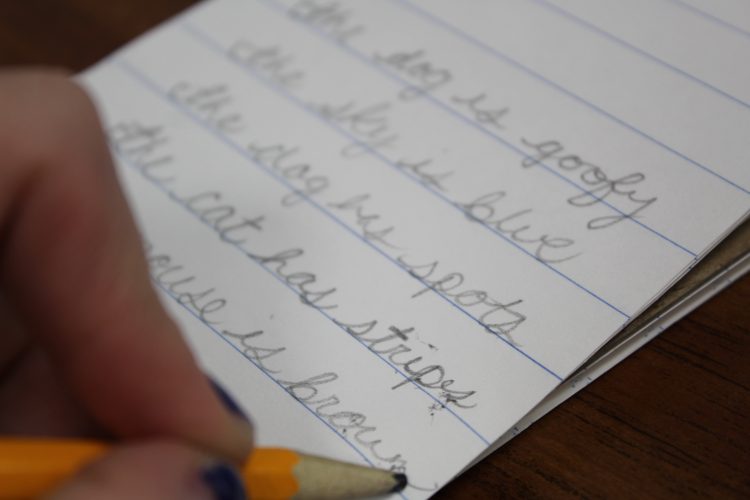 the dog is goofy
the sky is blue
the dog has spots
the cat has stripes
mouse is brown